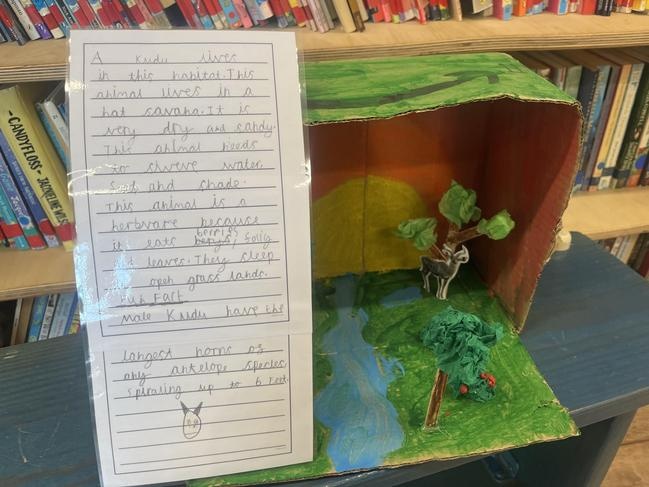 A Kudu lives
in this habitat. This
animal lives in a
hot savana. It is
very dry and sandy.
This animal needs
to shveve water,
food and shade.
This animal is a
herbvare because
berries
it eats
and leaves. They sleep
open grass lands.
Fun Fact
Male Kudu have the
longest horns of
any antelope species,
spiraling up to 6 feet.
CANDYFLOSS
JACQUELINE WILSON